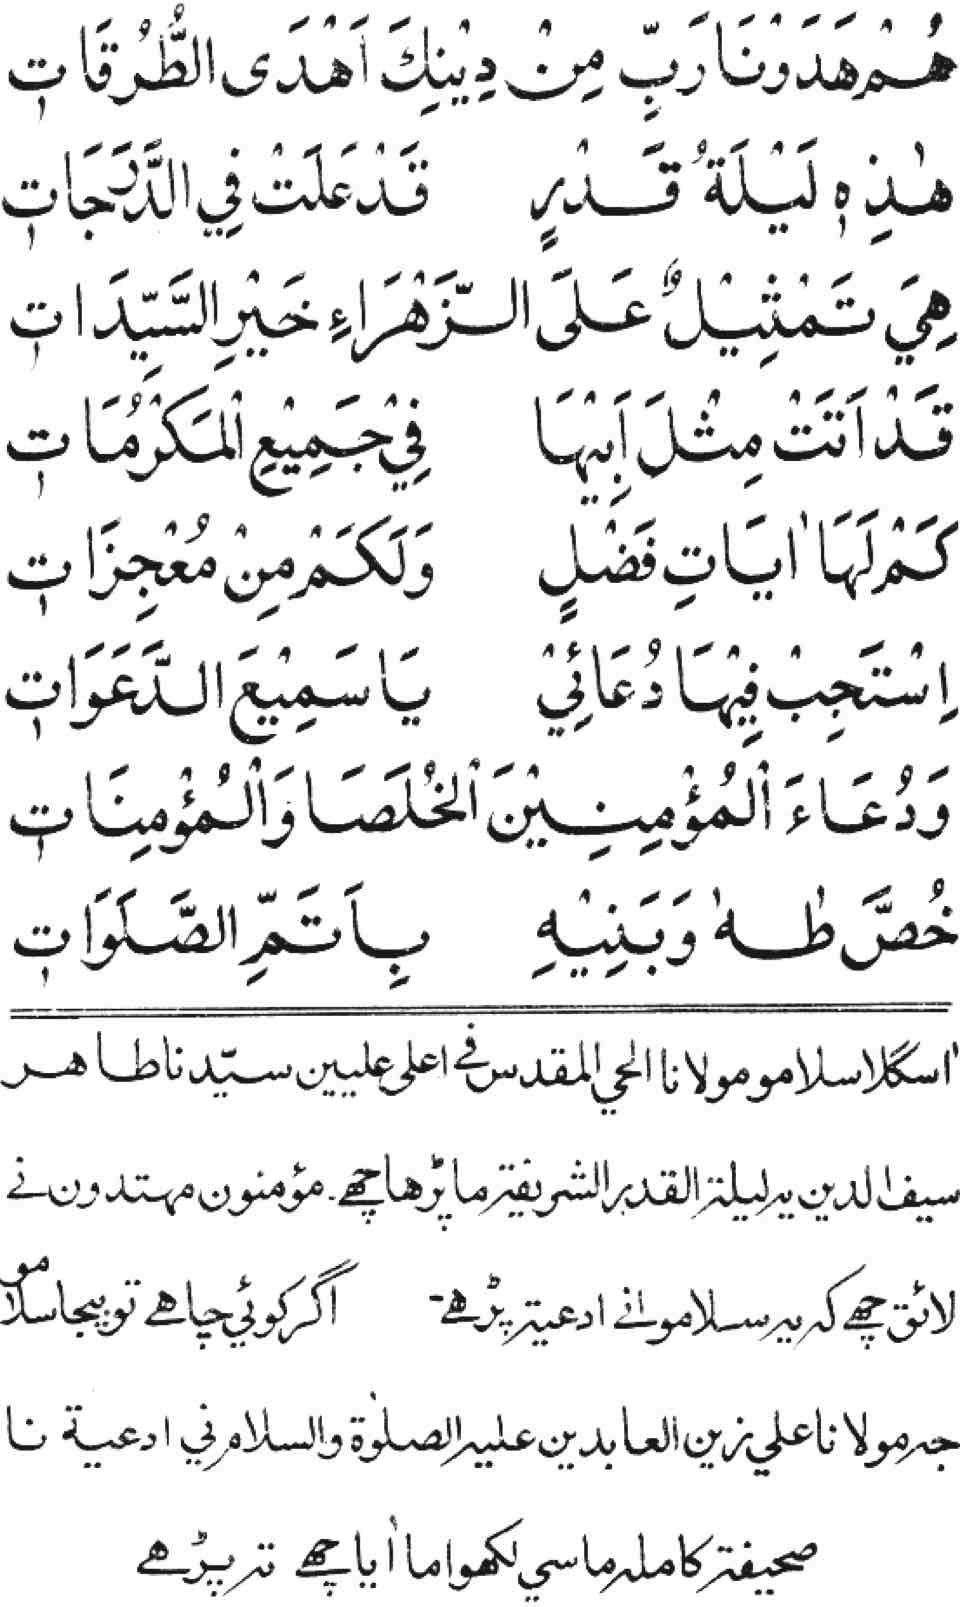 هُمْ هَدَوْنَا رَبِّ مِنْ دِيْنِكَ اَهْدَى الطُّرُقَاتِ
هٰذِهٖ لَيْلَةُ قَدْرٍ قَدْ عَلَتْ فِي الدَّرَجَاتِ
هِيَ تَمْثِيْلٌ عَلَى الزَّهْرَاءِ خَيْرِ السَّيِّدَاتِ
قَدْ اَتَتْ مِثْلَ اَبِيْهَا فِيْ جَمِيْعِ الْمَكْرُمَاتِ
كَمْ لَهَا اٰيَاتِ فَضْلٍ وَلَكَمْ مِنْ مُعْجِزَاتِ
اِسْتَجِبْ فِيْهَا دُعَائِيْ يَا سَمِيْعَ الدَّعَوَاتِ
وَدُعَاءَ الْمُؤْمِنِيْنَ الْخُلَصَا وَالْمُؤْمِنَاتِ
خُصَّ طٰهٰ وَبَنِيْهِ بِاَتَمِّ الصَّلَوَاتِ
اٰسگلا سلامو مولانا الحي المقدس في اعلى عليين سيّدنا طاهر
سيف الدين يه ليلة القدر الشريفة ما پڑها چھے. مؤمنون مهتدون نے
لائق چھے كہ يه سلامو انے ادعية پڑھے- اگر كوئي چاهے تو بيجا سلامو
جه مولانا علي زين العابدين عليه الصلوٰة والسلام ني ادعية نا
صحيفة كاملہ ما سي لكهوا ما اٰيا چھے تہ پڑھے